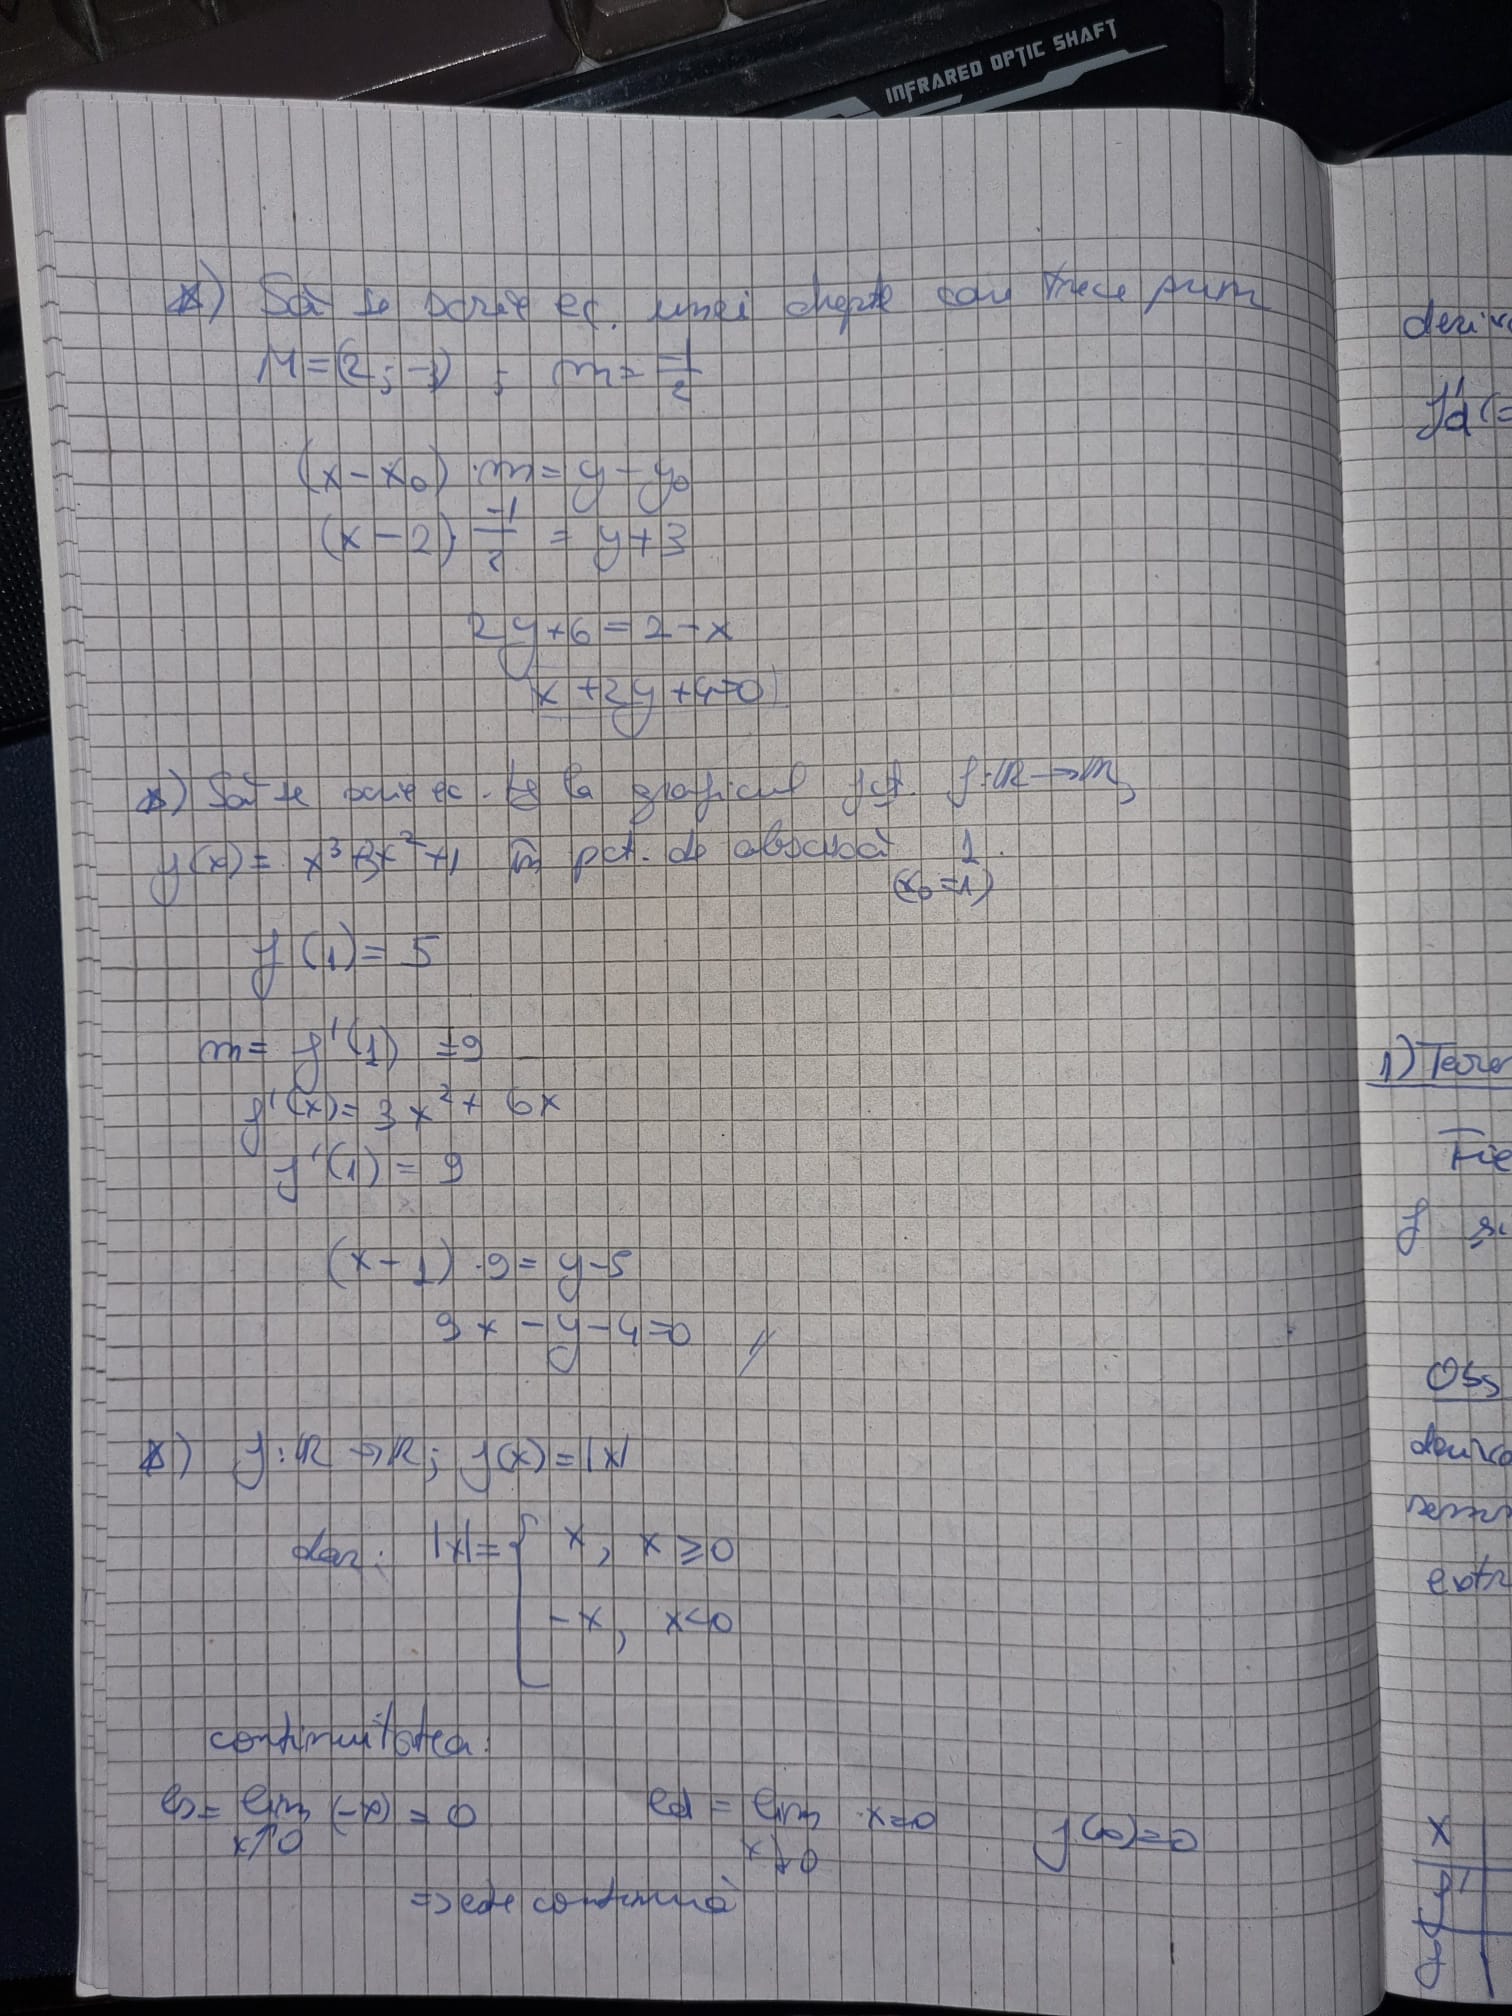 INFRARED OPTIC SHAFT
*) Să se scrie ec. unei drepte care trece prin
M=(2;-3) ; m= -1/2
(x-x₀)·m=y-y₀
(x-2)·-1/2 = y+3
2y+6=2-x
x+2y+4=0
*) Să se scrie ec. tg la graficul fct. f:ℝ→ℝ,
f(x)= x³+3x²+1 în pct. de abscisă 1.
(x₀=1)
f(1)=5
m= f'(1) =9
f'(x)=3x²+6x
f'(1)=9
(x-1)·9=y-5
9x-y-4=0
*) f:ℝ→ℝ; f(x)=|x|
dar: |x|={ x, x≥0
-x, x<0
continuitatea:
ls= lim x↑0 (-x) = 0 ld = lim x↓0 x=0 f(0)=0
=> este continuă
1) Teorem
Fie
f
Obs
x
f'
f